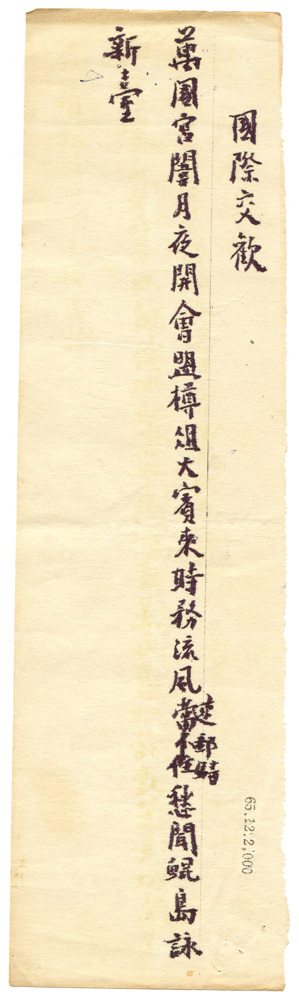 國際交歡
萬國宮闈月夜開會盟樽俎大賓來時務流風當愁聞鯤島詠
新臺
65.12.2,000